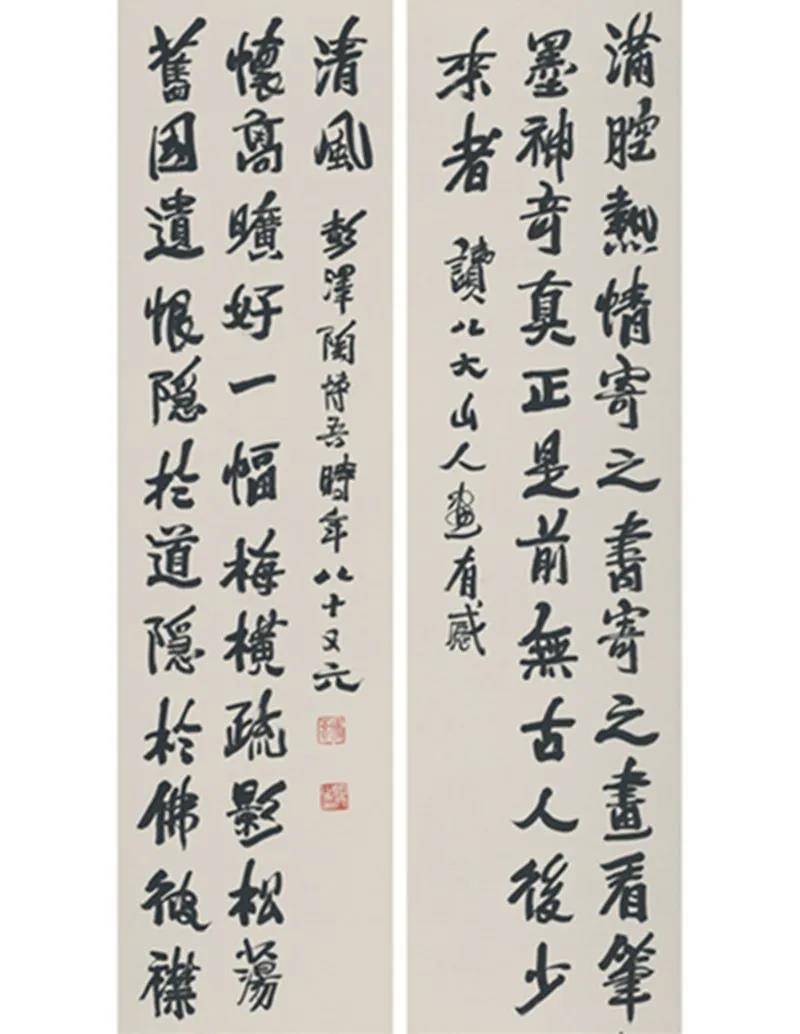 滿腔熱情寄之書寄之畫看筆
墨神奇真正是前無古人後少
來者 讀八大山人畫有感
舊國遺恨隱於道隱於佛彼襟
懷高曠好一幅梅橫疏影松蕩
清風 彭澤陶博吾時年八十又六